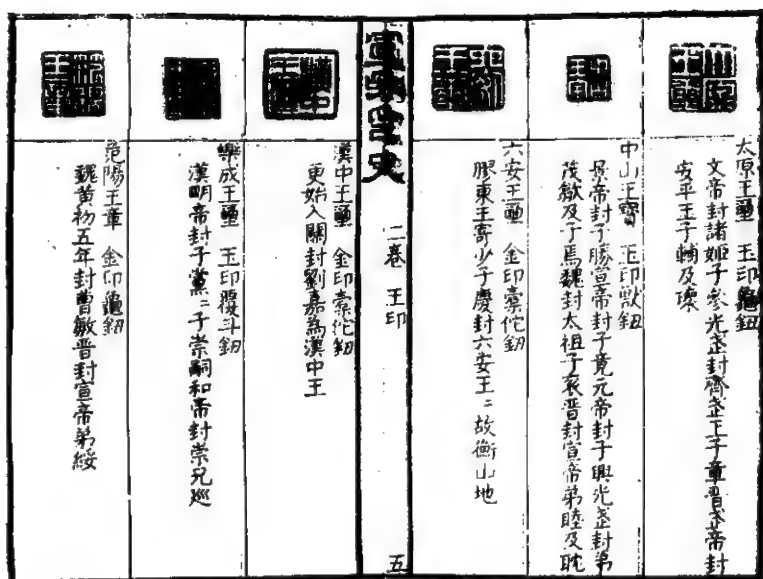 太原王璽 玉印龜鈕
文帝封諸姬子參光武封齊武王子章晋武帝封
安平王子輔及瓌
中山王寶 玉印獸鈕
景帝封子勝宣帝封子竟元帝封子興光武封弟
茂歙及子焉魏封太祖子衮晋封宣帝弟睦及耽
六安王璽 金印橐佗鈕
膠東王寄少子慶封六安王二故衡山地
二卷 王印
五
漢中王璽 金印橐佗鈕
更始入關封劉嘉為漢中王
樂成王璽 玉印覆斗鈕
漢明帝封子黨二子崇嗣和帝封崇兄巡
范陽王章 金印龜鈕
魏黄初五年封曹敏晋封宣帝弟綏